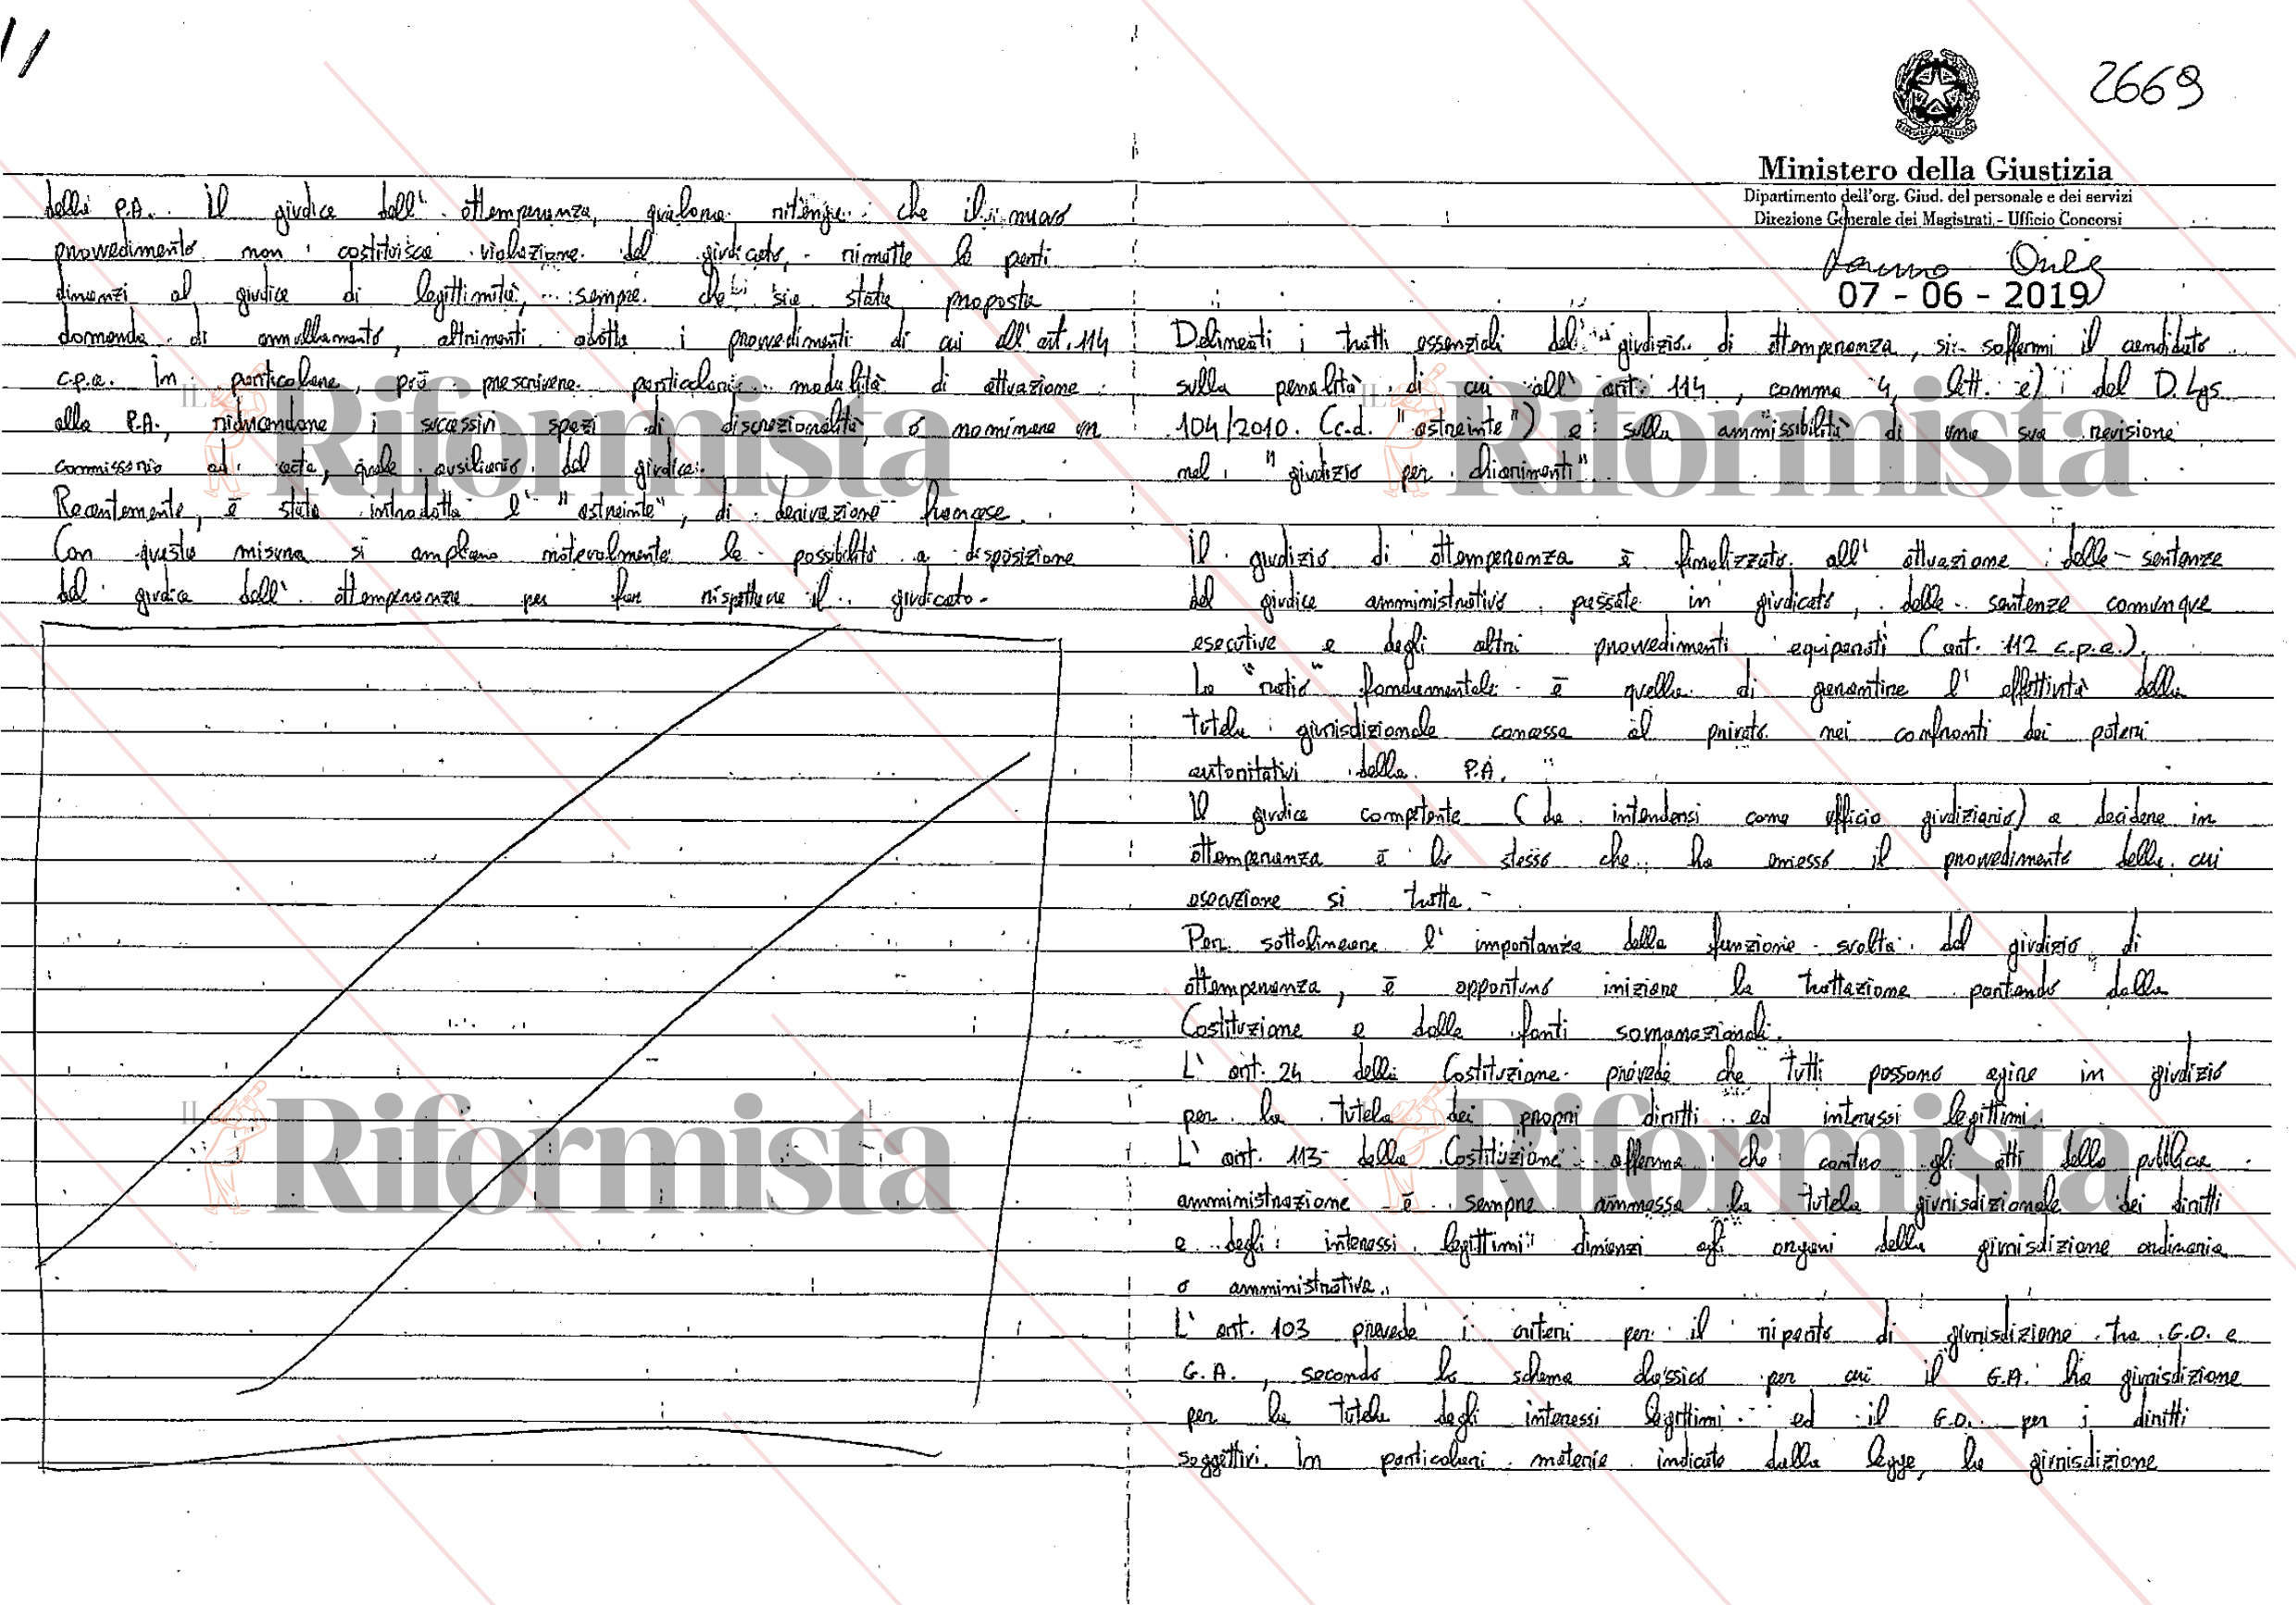 della P.A. Il giudice dell'ottemperanza, qualora ritenga che il nuovo
provvedimento non costituisca violazione del giudicato, rimette le parti
dinanzi al giudice di legittimità, sempre che sia stata proposta
domanda di annullamento, altrimenti adotta i provvedimenti di cui all'art. 114
c.p.a. In particolare, può prescrivere particolari modalità di attuazione
alla P.A., riducendone i successivi spazi di discrezionalità, o nominare un
commissario ad acta, quale ausiliario del giudice.
Recentemente, è stata introdotta l' "astreinte", di derivazione francese.
Con questa misura si ampliano notevolmente le possibilità a disposizione
del giudice dell'ottemperanza per far rispettare il giudicato.
2669
Ministero della Giustizia
Dipartimento dell'org. Giud. del personale e dei servizi
Direzione Generale dei Magistrati - Ufficio Concorsi
07 - 06 - 2019
Delineati i tratti essenziali del giudizio di ottemperanza, si soffermi il candidato
sulla penalità di cui all'art. 114, comma 4, lett. e) del D.Lgs.
104/2010 (c.d. "astreinte") e sulla ammissibilità di una sua revisione
nel "giudizio per chiarimenti"
Il giudizio di ottemperanza è finalizzato all'attuazione delle sentenze
del giudice amministrativo passate in giudicato, delle sentenze comunque
esecutive e degli altri provvedimenti equiparati (art. 112 c.p.a.).
La "ratio" fondamentale è quella di garantire l'effettività della
tutela giurisdizionale concessa al privato nei confronti dei poteri
autoritativi della P.A.
Il giudice competente (da intendersi come ufficio giudiziario) a decidere in
ottemperanza è lo stesso che ha emesso il provvedimento della cui
esecuzione si tratta.
Per sottolineare l'importanza della funzione svolta dal giudizio di
ottemperanza, è opportuno iniziare la trattazione partendo dalla
Costituzione e dalle fonti sovranazionali.
L'art. 24 della Costituzione prevede che tutti possono agire in giudizio
per la tutela dei propri diritti ed interessi legittimi.
L'art. 113 della Costituzione afferma che contro gli atti della pubblica
amministrazione è sempre ammessa la tutela giurisdizionale dei diritti
e degli interessi legittimi dinanzi agli organi della giurisdizione ordinaria
o amministrativa.
L'art. 103 prevede i criteri per il riparto di giurisdizione tra G.O. e
G.A., secondo lo schema classico per cui il G.A. ha giurisdizione
per la tutela degli interessi legittimi ed il G.O. per i diritti
soggettivi. In particolari materie indicate dalla legge, la giurisdizione
IL Riformista
IL Riformista
IL Riformista
Riformista